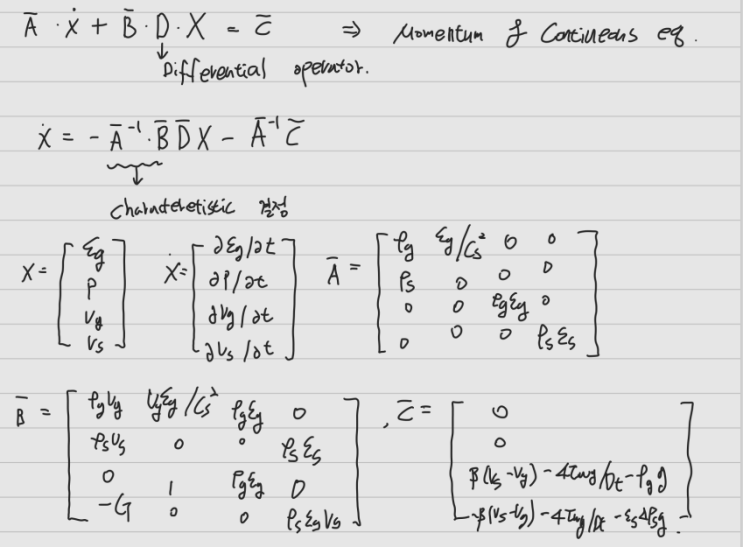 A̅ · ẋ + B̅ · D · X = C̅ ⇒ Momentum & Continuous eq.
↓ Differential operator.
ẋ = - A̅⁻¹ · B̅ D̅ X - A̅⁻¹ C̅
↓
Characteteristic 결정
X = [ εg ; P ; Vg ; Vs ] Ẋ = [ ∂εg/∂t ; ∂P/∂t ; ∂Vg/∂t ; ∂Vs/∂t ] A̅ = [ ρg εg/Cs² 0 0 ; ρs 0 0 0 ; 0 0 ρgεg 0 ; 0 0 0 ρsεs ]
B̅ = [ ρgVg Vgεg/Cs² ρgεg 0 ; ρsVs 0 0 ρsεs ; 0 1 ρgεg 0 ; -G 0 0 ρsεgVs ] , C̅ = [ 0 ; 0 ; β(Vs-Vg) - 4τwg/Dt - ρg g ; -β(Vs-Vg) - 4τwg/Dt - εsΔρsg ]